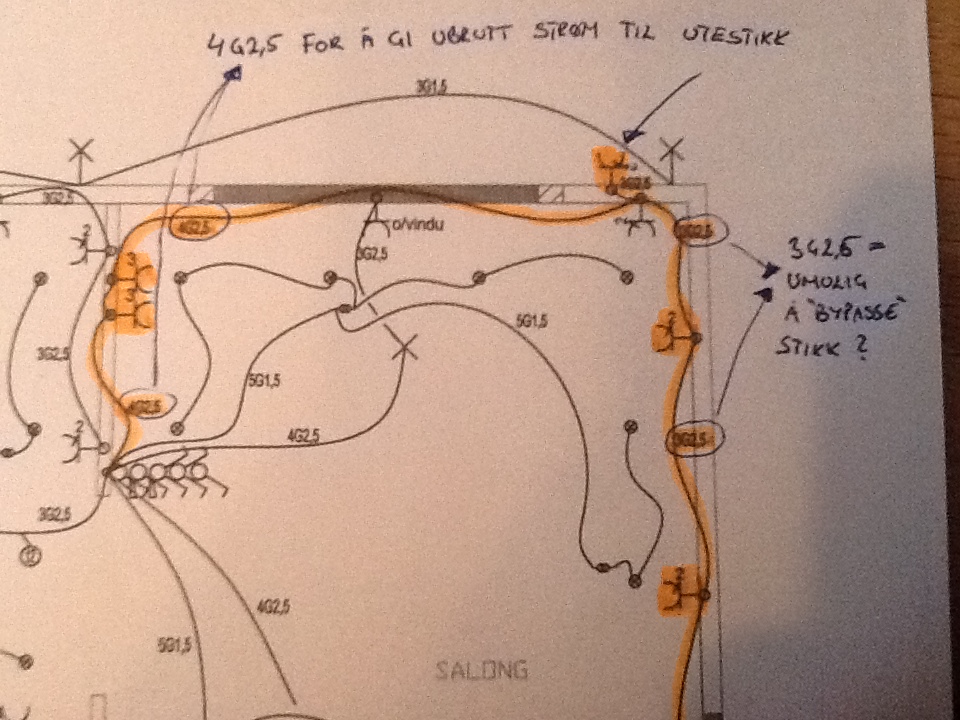 4G2,5 FOR Å GI UBRUTT STRØM TIL UTESTIKK
3G1,5
3G2,5
3G2,5
4G2,5
o/vindu
3G2,5
3G2,5
2
3
3
3G2,5 =
UMOLIG
Å "BYPASSE"
STIKK ?
3G2,5
5G1,5
2
3G2,5
5G1,5
4G2,5
2
4G2,5
3G2,5
3G2,5
12
2
4G2,5
5G1,5
SALONG